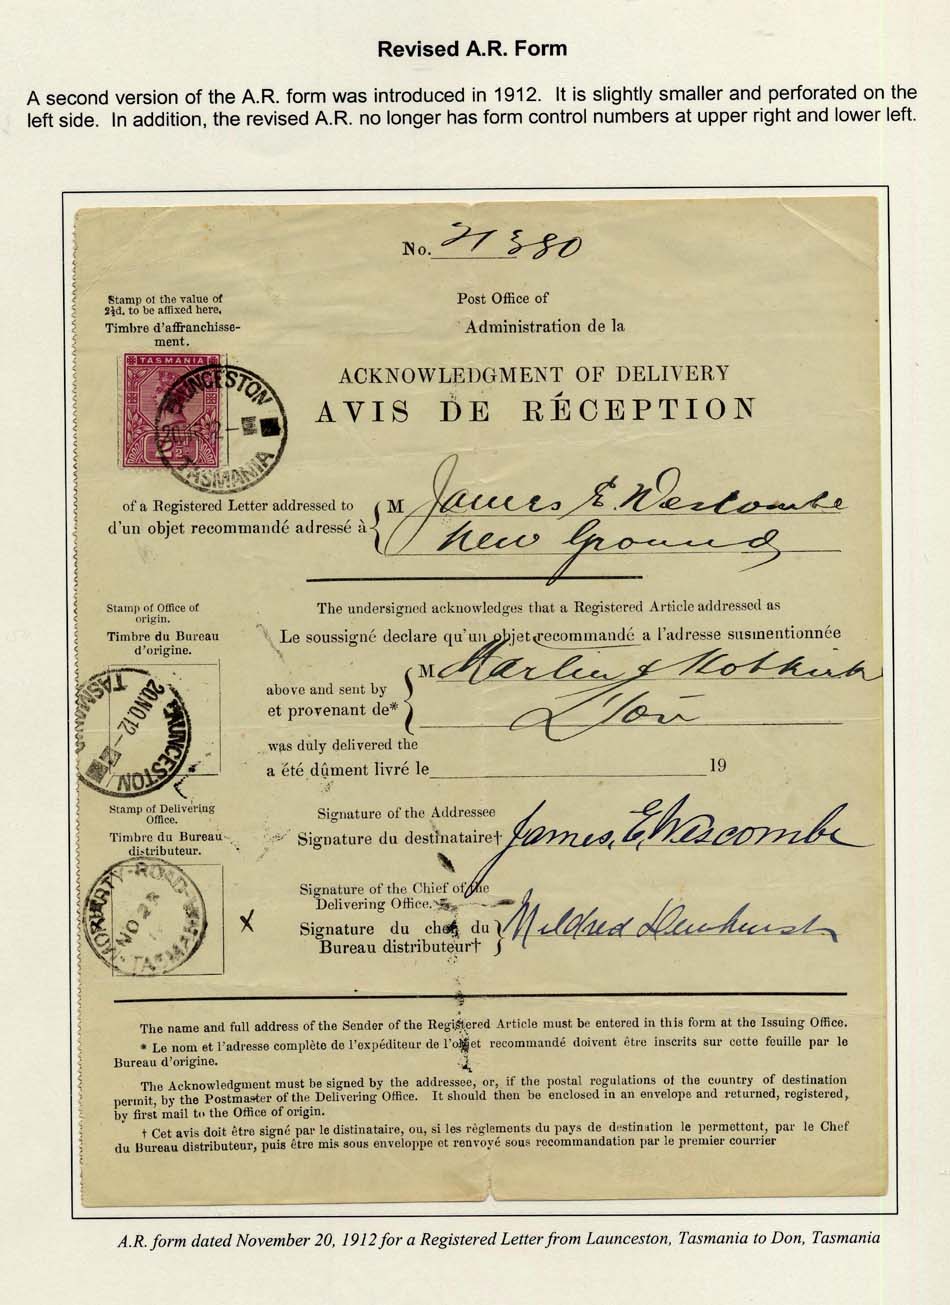 Revised A.R. Form
A second version of the A.R. form was introduced in 1912. It is slightly smaller and perforated on the
left side. In addition, the revised A.R. no longer has form control numbers at upper right and lower left.
No. 21380
Stamp ot the value of
2½d. to be affixed here.
Timbre d'affranchisse-
ment.
Post Office of
Administration de la
TASMANIA
LAUNCESTON
TASMANIA
ACKNOWLEDGMENT OF DELIVERY
AVIS DE RÉCEPTION
of a Registered Letter addressed to
d'un objet recommandé adressé à
M James E. Wescombe
New Ground
Stamp of Office of
origin.
Timbre du Bureau
d'origine.
The undersigned acknowledges that a Registered Article addressed as
Le soussigné declare qu'un objet recommandé a l'adresse susmentionnée
LAUNCESTON
20.NO.12
TASMANIA
above and sent by
et provenant de*
M Martin & Hobkirk
was duly delivered the
a été dûment livré le 19
Stamp of Delivering
Office.
Timbre du Bureau
distributeur.
Signature of the Addressee
Signature du destinataire†
James, E, Wescombe
MORIARTY-ROAD
NO 23
TASMANIA
x
Signature of the Chief of the
Delivering Office.
Signature du chef du
Bureau distributeur†
Mildred Dewhurst
The name and full address of the Sender of the Registered Article must be entered in this form at the Issuing Office.
* Le nom et l'adresse complète de l'expéditeur de l'objet recommandé doivent être inscrits sur cette feuille par le
Bureau d'origine.
The Acknowledgment must be signed by the addressee, or, if the postal regulations ot the country of destination
permit, by the Postmaster of the Delivering Office. It should then be enclosed in an envelope and returned, registered,
by first mail to the Office of origin.
† Cet avis doit être signé par le distinataire, ou, si les règlements du pays de destination le permettent, par le Chef
du Bureau distributeur, puis être mis sous enveloppe et renvoyé sous recommandation par le premier courrier
A.R. form dated November 20, 1912 for a Registered Letter from Launceston, Tasmania to Don, Tasmania